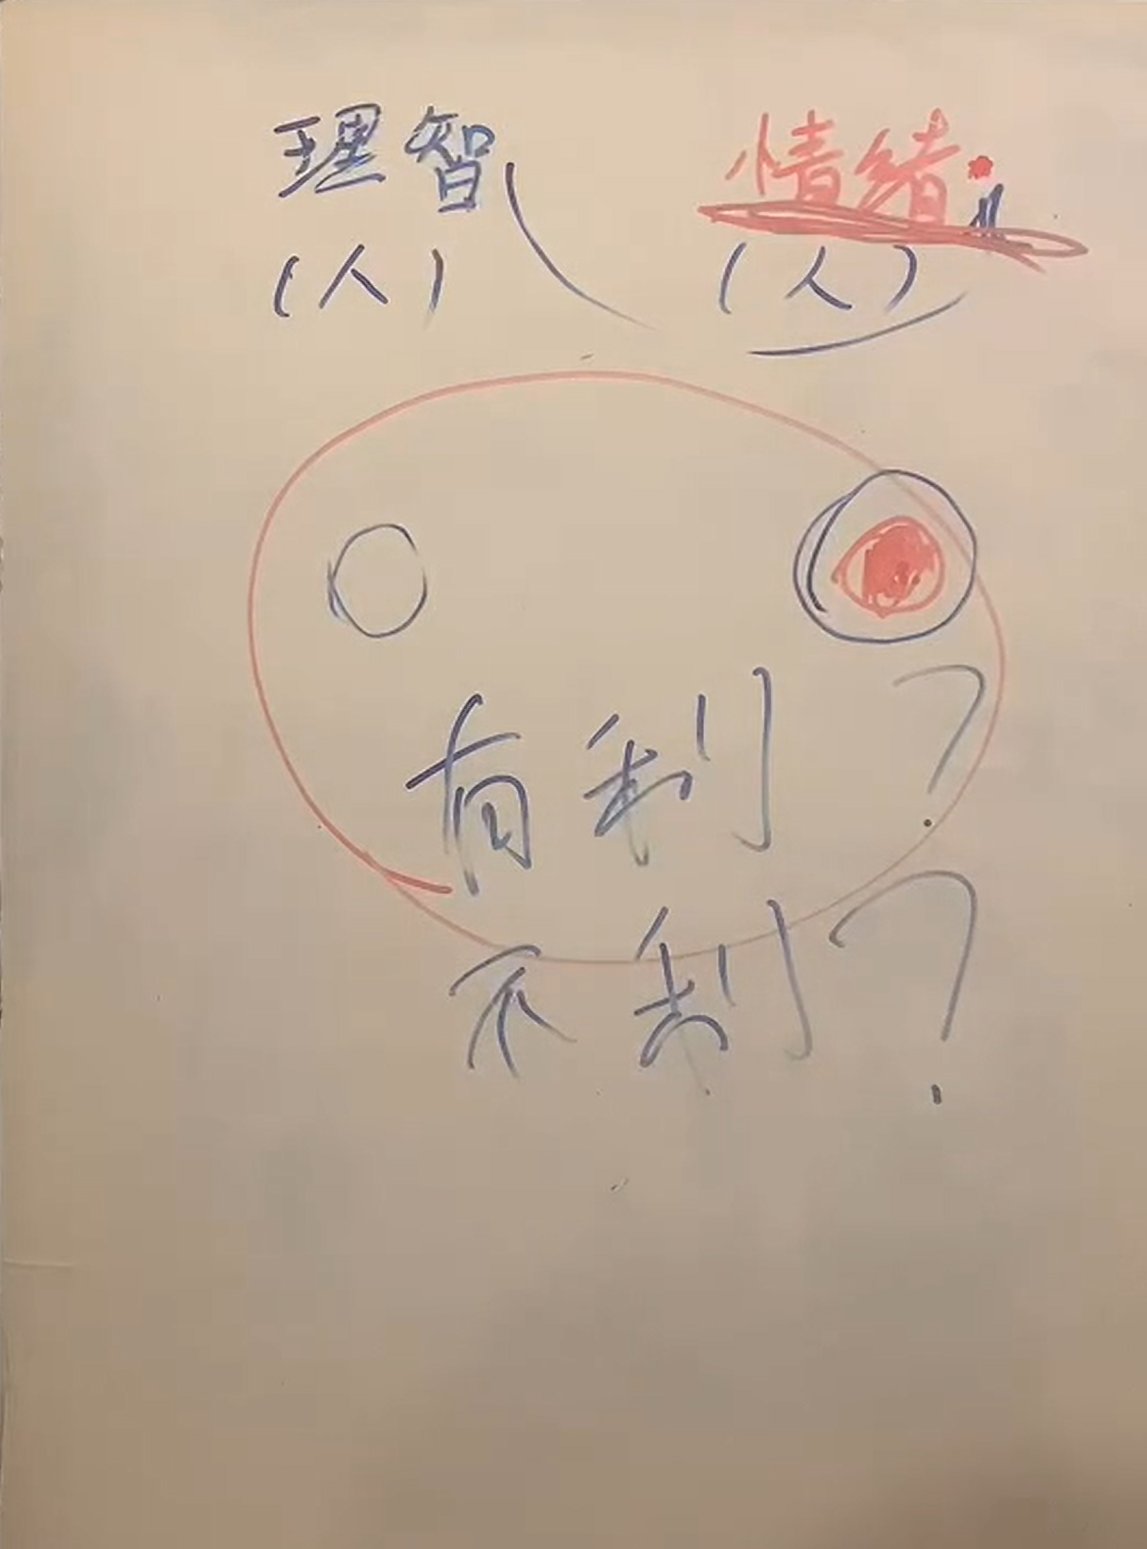 理智 情绪
(人) (人)
有利?
不利?